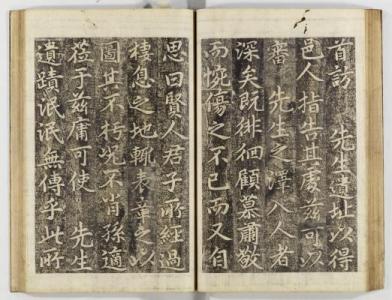 首訪 先生遺址以得
邑人指告其處茲可以
審 先生之澤入人者
深矣既徘徊顧慕肅敬
而傷之不已而又自
思曰賢人君子所經過
棲息之地輒表章之以
圖其不朽况不肖孫適
蒞于茲庸可使 先生
遺蹟泯泯無傳乎此所